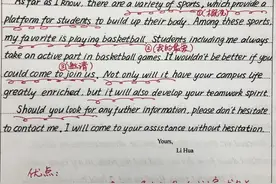 As far as I know, there are a variety of sports, which provide a
platform for students to build up their body. Among these sports,
my favorite is playing basketball. Students including me always
take an active part in basketball games. It wouldn't be better if you
could come to join us. Not only will it have your campus life
greatly enriched, but it will also develop your teamwork spirit.
Should you look for any futher information, please don't hesitate
to contact me, I will come to your assistance without hesitation.
Yours,
Li Hua
优点：